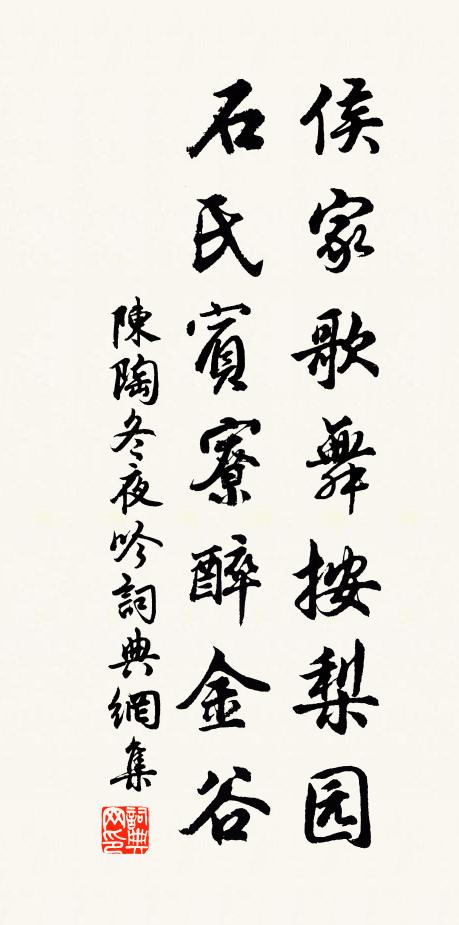 侯家歌舞按梨园
石氏賓寮醉金谷
陳陶冬夜吟詞典網集
詞典網印